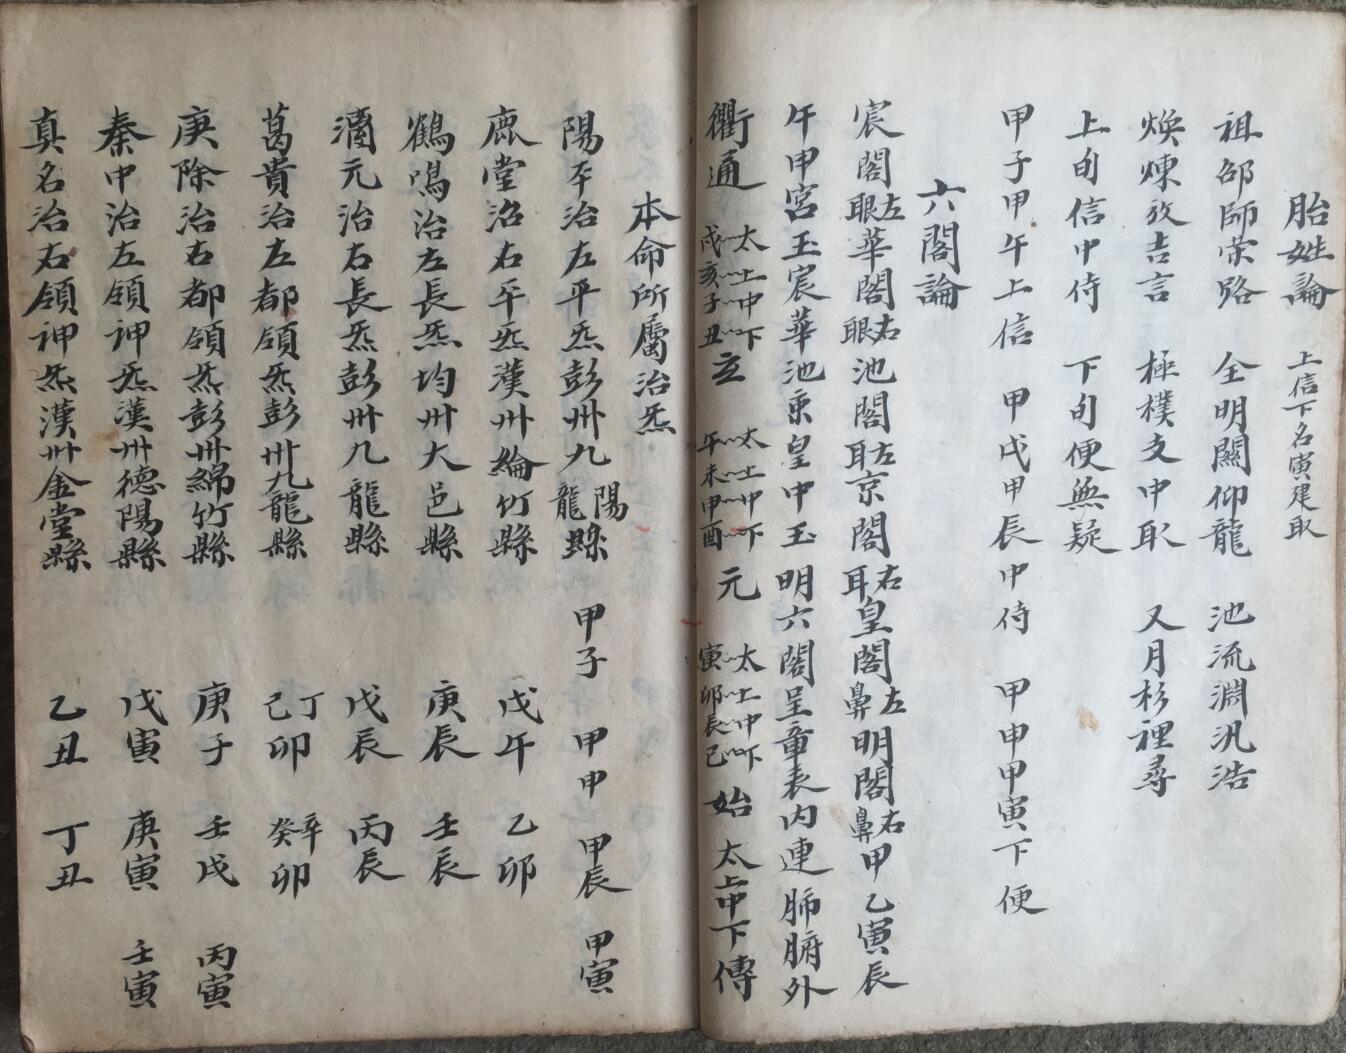 胎姓論 上信下名寅建取
祖邵師荣路 全明關仰龍 池流淵汎浩
煥煉放吉言 極樸支申取 又月杉裡尋
上旬信中侍 下旬便無疑
甲子甲午上信 甲戌甲辰中侍 甲申甲寅下便
六閣論
宸閣左眼華閣右眼池閣左耳京閣右耳皇閣左鼻明閣右鼻甲乙寅辰
午甲宮玉宸華池京皇中玉明六閣呈章表内連肺腑外
衢通 太上中下 戌亥子丑 玄 太上中下 午未申酉 元 太上中下 寅卯辰巳 始 太上中下傳
本命所屬治炁
陽平治左平炁彭州九隴縣 甲子 甲申 甲辰 甲寅
鹿堂治右平炁漢州綿竹縣 戊午 乙卯
鶴鳴治左長炁均州大邑縣 庚辰 壬辰
漓元治右長炁彭州九龍縣 戊辰 丙辰
葛貴治左都領炁彭州九龍縣 丁己卯 辛癸卯
庚除治右都領炁彭州綿竹縣 庚子 壬戌 丙寅
秦中治左領神炁漢州德陽縣 戊寅 庚寅 壬寅
真名治右領神炁漢州金堂縣 乙丑 丁丑